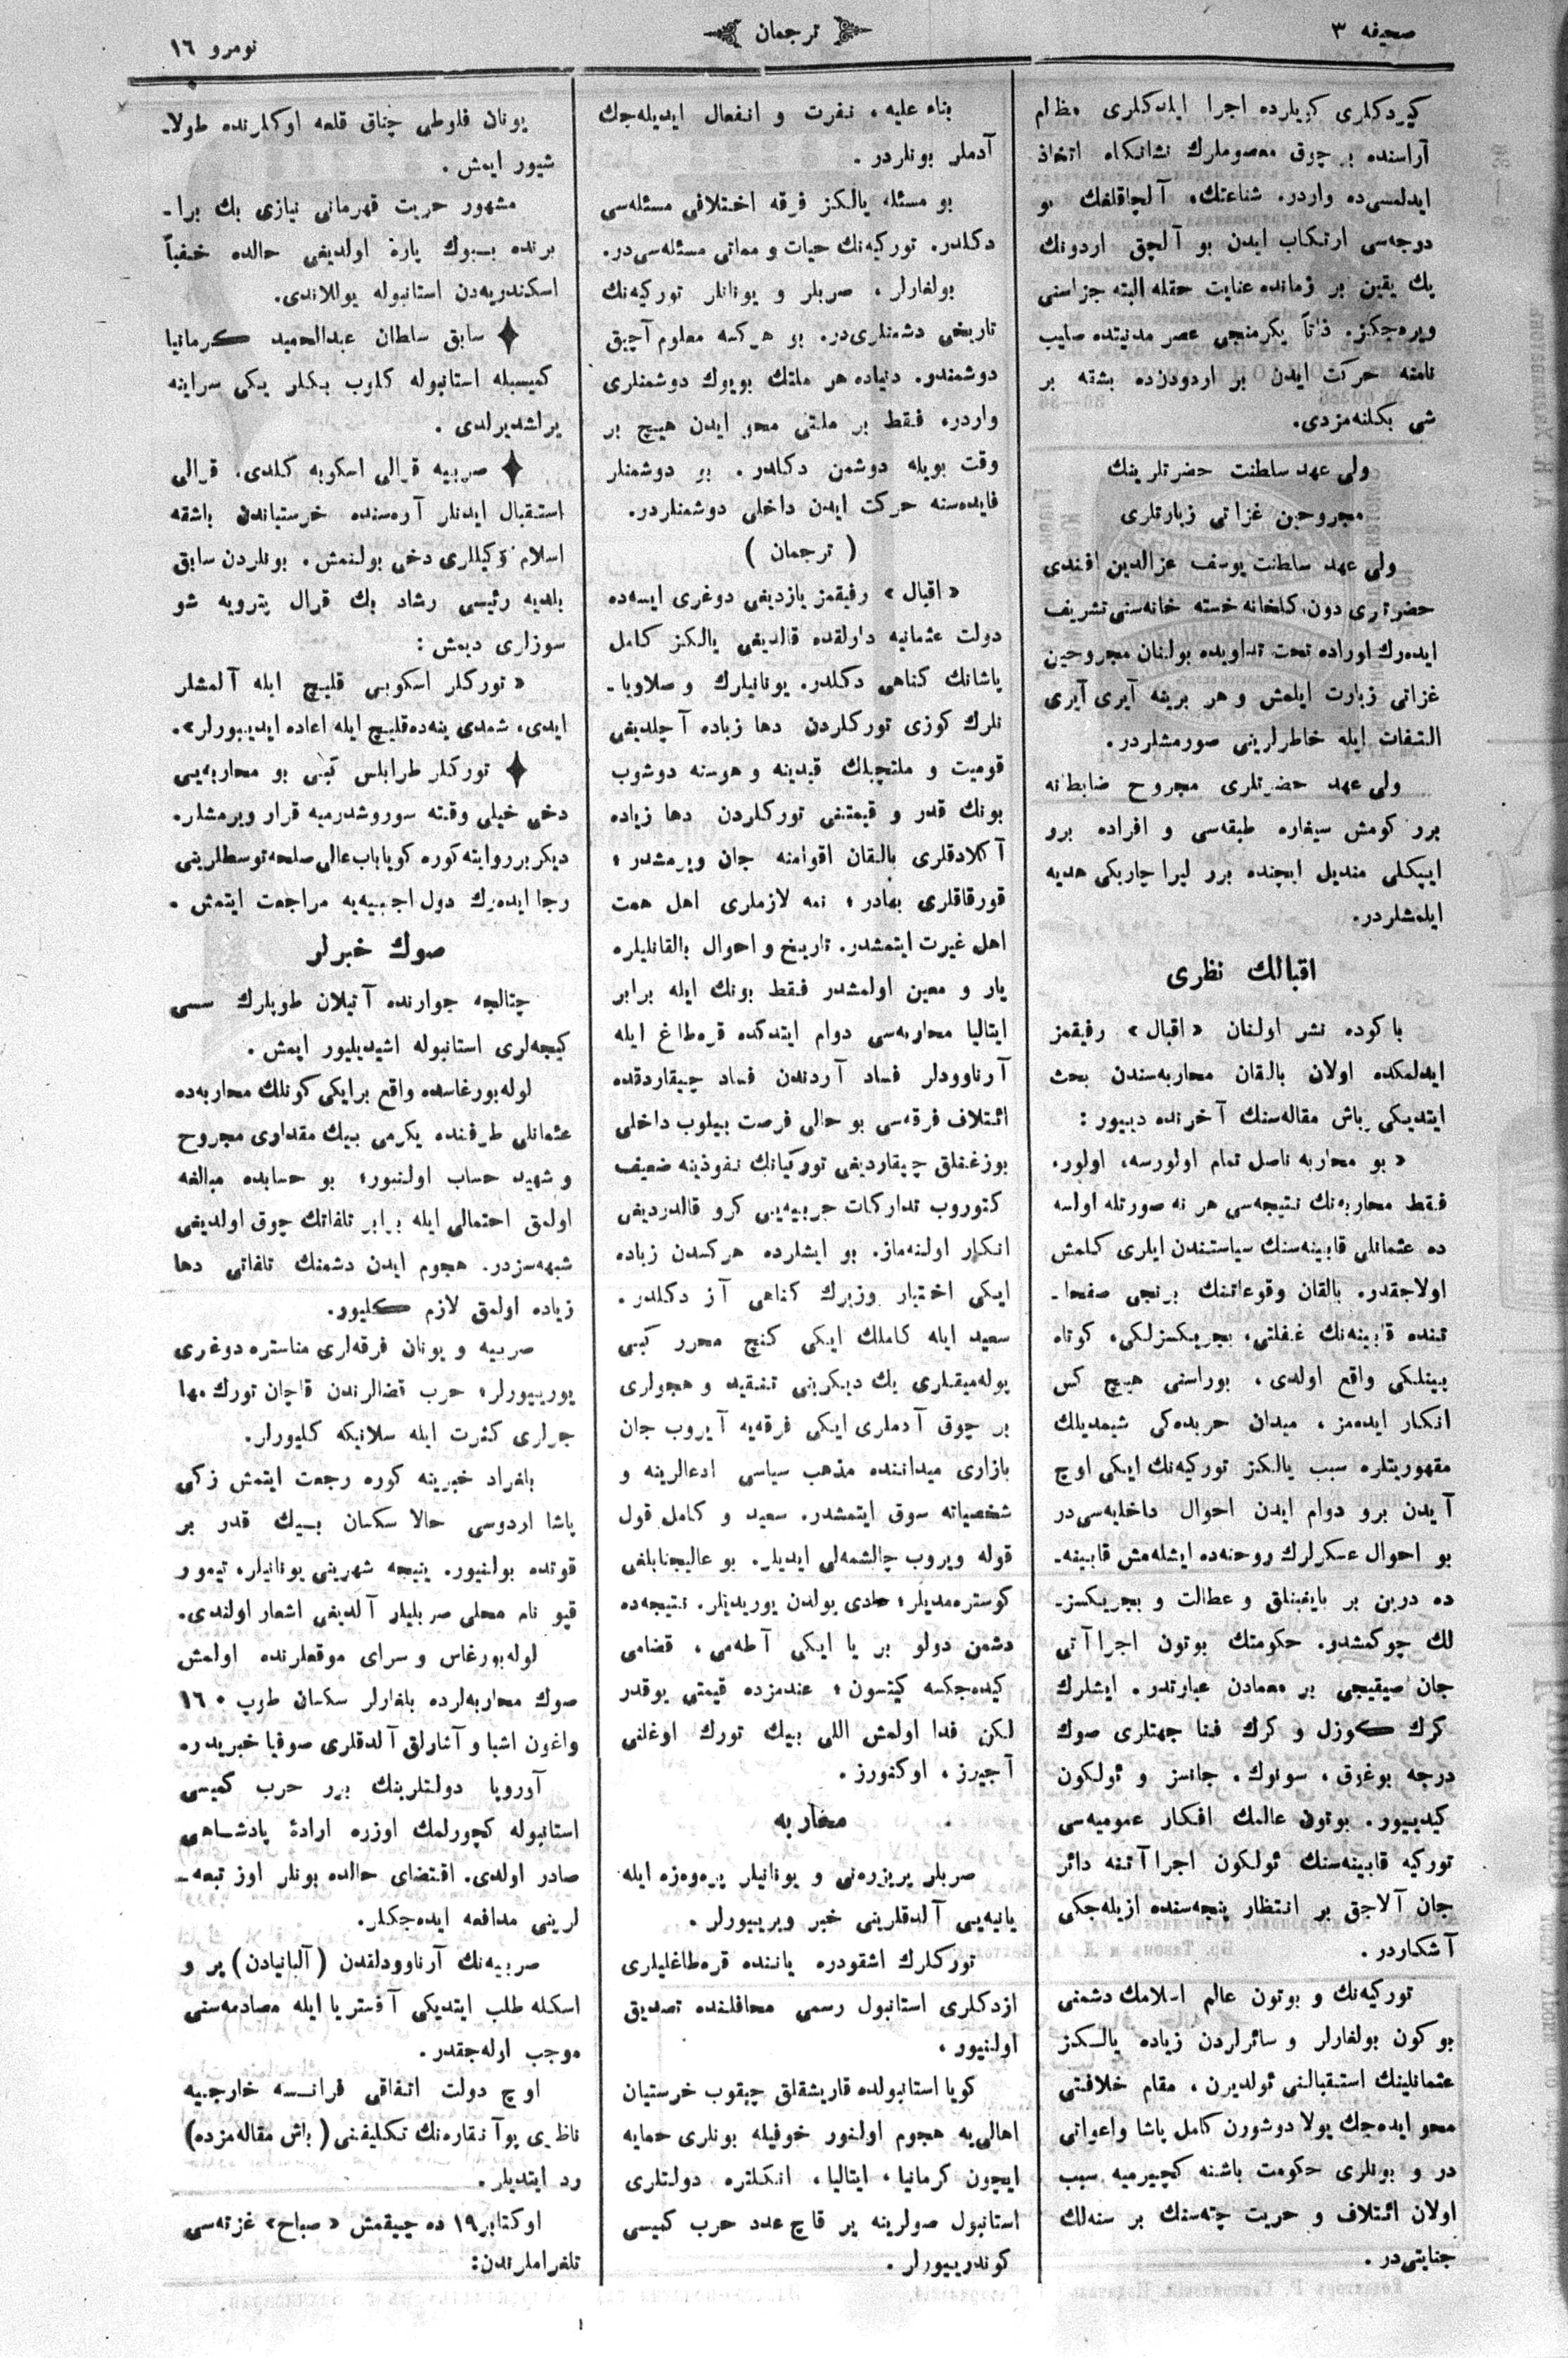 صحیفه ٣
ترجمان
نومرو ١٦
کیردکلری کویلرده اجرا ایلدکلری مظالم
آراسنده بر چوق معصوملرك نشانکاه اتخاذ
ایدلمسی‌ده واردر. شناعتك، آلچاقلغك بو
درجه‌سی ارتکاب ایدن بو آلچق اردونك
پك یقین بر زمانده عنایت حقله البته جزاسنی
ویره‌جکز. ذاتاً یکرمنجی عصر مدنیتده صلیب
نامنه حرکت ایدن بر اردودن‌ده بشقه بر
شی بکلنه‌مزدی.
ولی عهد سلطنت حضرتلرینك
مجروحین غزاتی زیارتلری
ولی عهد سلطنت یوسف عزالدین افندی
حضرتلری دون، کلخانه خسته خانه‌سنی تشریف
ایده‌رك اوراده تحت تداویده بولنان مجروحین
غزاتی زیارت ایلمش و هر برینه آیری آیری
التفات ایله خاطرلرینی صورمشلردر.
ولی عهد حضرتلری مجروح ضابطانه
برر کومش سیغاره طبقه‌سی و افراده برر
ایپکلی مندیل ایچنده برر لیرا چاریکی هدیه
ایلمشلردر.
اقبالك نظری
باکوده نشر اولنان «اقبال» رفیقمز
ایدلمکده اولان بالقان محاربه‌سندن بحث
ایتدیکی باش مقاله‌سنك آخرنده دییور :
« بو محاربه ناصل تمام اولورسه، اولور.
فقط محاربه‌نك نتیجه‌سی هر نه صورتله اولسه
ده عثمانلی قابینه‌سنك سیاستندن ایلری کلمش
اولاجقدر. بالقان وقوعاتنك برنجی صفحا-
تنده قابینه‌نك غفلتی، بجریکسزلکی، کوتاه
بینلکی واقع اولدی، بوراسنی هیچ کس
انکار ایده‌مز، میدان حربده‌کی شیمدیلك
مقهوریتلره سبب یالکز تورکیه‌نك ایکی اوچ
آیدن برو دوام ایدن احوال داخلیه‌سی‌در
بو احوال عسکرلرك روحنه‌ده ایشله‌مش قابینه-
ده درین بر بایغینلق و عطالت و بجریکسز-
لك چوکمشدر. حکومتك بوتون اجراآتی
جان صیقیجی بر معمادن عبارتدر. ایشلرك
کرك کوزل و کرك فنا جهتلری صوك
درجه بوغوق، سونوك، جانسز و ئولکون
کیدییور. بوتون عالمك افکار عمومیه‌سی
تورکیه قابینه‌سنك ئولکون اجراآتنه دائر
جان آلاجق بر انتظار پنجه‌سنده ازیله‌جکی
آشکاردر.
تورکیه‌نك و بوتون عالم اسلامك دشمنی
بو کون بولغارلر و سائرلردن زیاده یالکز
عثمانلینك استقبالنی ئولدیرن، مقام خلافتی
محو ایده‌جك یولا دوشورن کامل پاشا و اعوانی
در و بونلری حکومت باشنه کچیرمیه سبب
اولان ائتلاف و حریت چته‌سنك بر سنه‌لك
جنایتی‌در.
بناء علیه، نفرت و انفعال ایدیله‌جك
آدملر بونلردر.
بو مسئله یالکز فرقه اختلافی مسئله‌سی
دکلدر. تورکیه‌نك حیات و مماتی مسئله‌سی‌در.
بولغارلر، صربلر و یونانلر تورکیه‌نك
تاریخی دشمنلری‌در. بو هرکسه معلوم آچیق
دوشمندر. دنیاده هر ملتك بویوك دوشمنلری
واردر، فقط بر ملتی محو ایدن هیچ بر
وقت بویله دوشمن دکلدر. بو دوشمنلر
فایده‌سنه حرکت ایدن داخلی دوشمنلردر.
( ترجمان )
« اقبال » رفیقمز یازدیغی دوغری ایسه‌ده
دولت عثمانیه دارلقده قالدیغی یالکز کامل
پاشانك کناهی دکلدر. یونانیلرك و صلاویا-
نلرك کوزی تورکلردن دها زیاده آچلدیغی
قومیت و ملتچیلك قیدینه و هوسنه دوشوب
بونك قدر و قیمتنی تورکلردن دها زیاده
آکلادقلری بالقان اقوامنه جان ویرمشدر؛
قورقاقلری بهادر؛ نمه لازملری اهل همت
اهل غیرت ایتمشدر. تاریخ و احوال بالقانلیلره
یار و معین اولمشدر فقط بونك ایله برابر
ایتالیا محاربه‌سی دوام ایتدکده قره‌طاغ ایله
آرناوودلر فساد آردندن فساد چیقاردقده
ائتلاف فرقه‌سی بو حالی فرصت بیلوب داخلی
بوزغنلق چیقاردیغی تورکیانك نفوذینه ضعیف
کتوروب تدارکات حربیه‌یی کرو قالدردیغی
انکار اولنه‌ماز. بو ایشلرده هرکسدن زیاده
ایکی اختیار وزیرك کناهی آز دکلدر.
سعید ایله کاملك ایکی کنچ محرر کبی
پوله‌میقلری یك دیکرینی تنقید و هجولری
بر چوق آدملری ایکی فرقه‌یه آیروب جان
بازاری میداننده مذهب سیاسی ادعالرینه و
شخصیاته سوق ایتمشدر. سعید و کامل قول
قوله ویروب چالشمه‌لی ایدیلر. بو عالیجنابلغی
کوستره‌مدیلر؛ عادی یولدن یوریدیلر. نتیجه‌ده
دشمن دولو بر یا ایکی آطه‌می، قضامی
کیده‌جکسه کیتسون؛ عندمزده قیمتی یوقدر
لکن فدا اولمش اللی بیك تورك اوغلنی
آجیرز، اوکنورز.
محاربه
صربلر پریزره‌نی و یونانیلر پره‌وه‌زه ایله
یانیه‌یی آلدقلرینی خبر ویرییورلر.
تورکلرك اشقودره یاننده قره‌طاغلیلری
ازدکلری استانبول رسمی محافلنده تصدیق
اولنیور.
کویا استانبولده قاریشقلق چیقوب خرستیان
اهالی‌یه هجوم اولنور خوفیله بونلری حمایه
ایچون کرمانیا، ایتالیا، انکلتره دولتلری
استانبول صولرینه بر قاچ عدد حرب کمیسی
کوندرییورلر.
یونان فلوطی چناق قلعه اوکلرنده طولا-
شیور ایمش.
مشهور حریت قهرمانی نیازی بك برا-
برنده بیوك پاره اولدیغی حالده خفیاً
اسکندریه‌دن استانبوله یوللاندی.
سابق سلطان عبدالحمید کرمانیا
کمیسیله استانبوله کلوب بکلر بکی سراینه
یراشدیرلدی.
صربیه قرالی اسکوبه کلدی. قرالی
استقبال ایدنلر آره‌سنده خرستیاندن باشقه
اسلام وکیللری دخی بولنمش. بونلردن سابق
بلدیه رئیسی رشاد بك قرال پترویه شو
سوزلری دیمش :
« تورکلر اسکوبی قلیچ ایله آلمشلر
ایدی، شمدی ینه‌ده قلیچ ایله اعاده ایدییورلر».
تورکلر طرابلس کبی بو محاربه‌یی
دخی خیلی وقته سوروشدرمیه قرار ویرمشلر.
دیکر بر روایته کوره کویا باب عالی صلحه توسطلرینی
رجا ایده‌رك دول اجنبیه‌یه مراجعت ایتمش.
صوك خبرلر
چتالجه جوارنده آتیلان طوپلرك سسی
کیجه‌لری استانبوله اشیدیلیور ایمش.
لوله‌بورغاسده واقع بر ایکی کونلك محاربه‌ده
عثمانلی طرفنده یکرمی بیك مقداری مجروح
و شهید حساب اولنیور؛ بو حسابده مبالغه
اولمق احتمالی ایله برابر تلفاتك چوق اولدیغی
شبهه‌سزدر. هجوم ایدن دشمنك تلفاتی دها
زیاده اولمق لازم کلیور.
صربیه و یونان فرقه‌لری مناستره دوغری
یورییورلر؛ حرب قضالرندن قاچان تورك مها
جرلری کثرت ایله سلانیکه کلیورلر.
بلغراد خبرینه کوره رجعت ایتمش زکی
پاشا اردوسی حالا سکسان بیك قدر بر
قوتده بولنیور. ینیجه شهرینی یونانیلر، تیمور
قپو نام محلی صربلیلر آلدیغی اشعار اولندی.
لوله‌بورغاس و سرای موقعلرنده اولمش
صوك محاربه‌لرده بلغارلر سکسان طوپ ١٦٠
واغون اشیا و آتارلق آلدقلری صوفیا خبریدر.
آوروپا دولتلرینك برر حرب کمیسی
استانبوله کچورلمك اوزره ارادهٔ پادشاهی
صادر اولدی. اقتضای حالده بونلر اوز تبعه-
لرینی مدافعه ایده‌جکلر.
صربیه‌نك آرناوودلقدن (آلبانیادن) یر و
اسکله طلب ایتدیکی آفستریا ایله مصادمه‌سنی
موجب اوله‌جقدر.
اوچ دولت اتفاقی فرانسه خارجیه
ناظری پوآنقاره‌نك تکلیفنی (باش مقاله‌مزده)
رد ایتدیلر.
اوکتابر ١٩ ده چیقمش « صباح» غزته‌سی
تلغراملرندن: